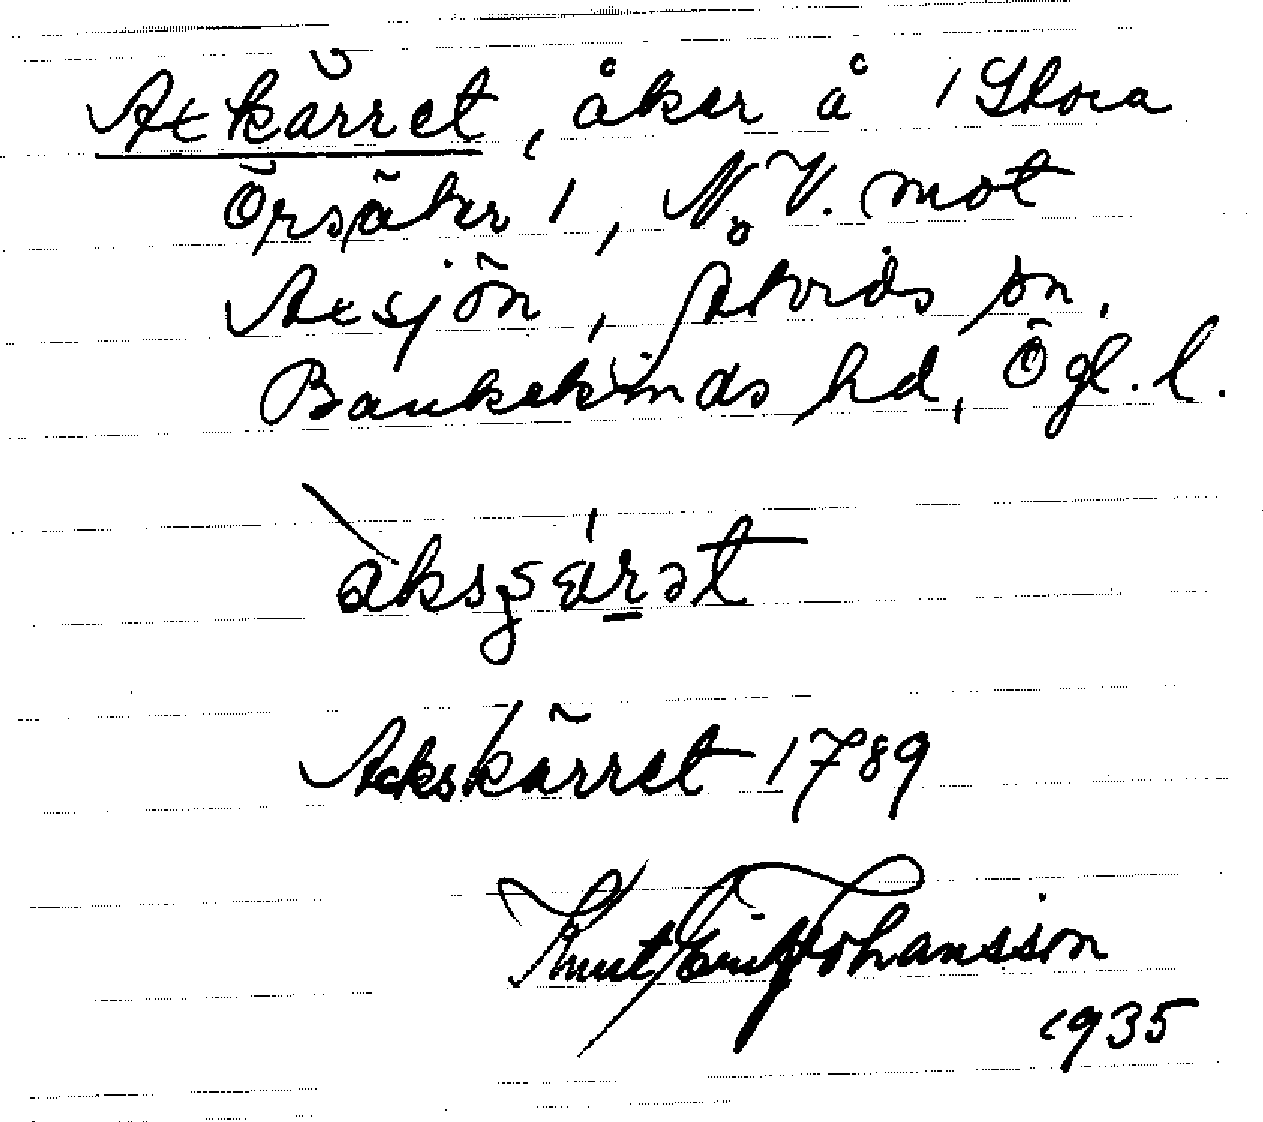 Axkärret, åker å 1 Stora
Örsäter 1, N.V. mot
Axsjön, Åtvids sn,
Bankekinds hd, Ögl. l.
Ackskärret 1789
Knut Erik Johansson
1935